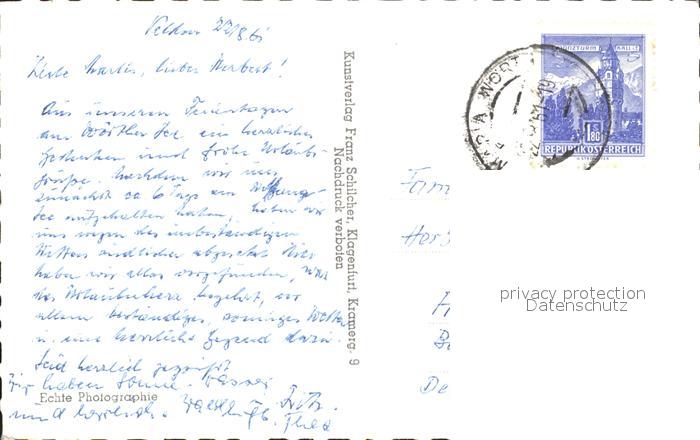 Velden 22/8.61
Liebe Martis, lieber Herbert!
Aus unseren Ferientagen
am Wörther See ein herzliches
Gedenken und frohe Urlaubs-
grüße. Nachdem wir uns
zunächst ca 6 Tage am Wolfgang
See aufgehalten haben, haben wir
uns wegen des unbeständigen
Wetters südlicher abgesetzt. Hier
haben wir alles vorgefunden, was
das Urlauberherz begehrt, vor
allem beständiges, sonniges Wetter
u. eine herrliche Gegend dazu.
Seid herzlich gegrüßt
Wir haben Sonne, Wasser
und herrliche Fritz
Thea
Echte Photographie
Kunstverlag Franz Schilcher, Klagenfurt, Kramerg. 9
Nachdruck verboten
MARIA WÖRTH
1.80
REPUBLIK ÖSTERREICH
Fam
Her
privacy protection
Datenschutz